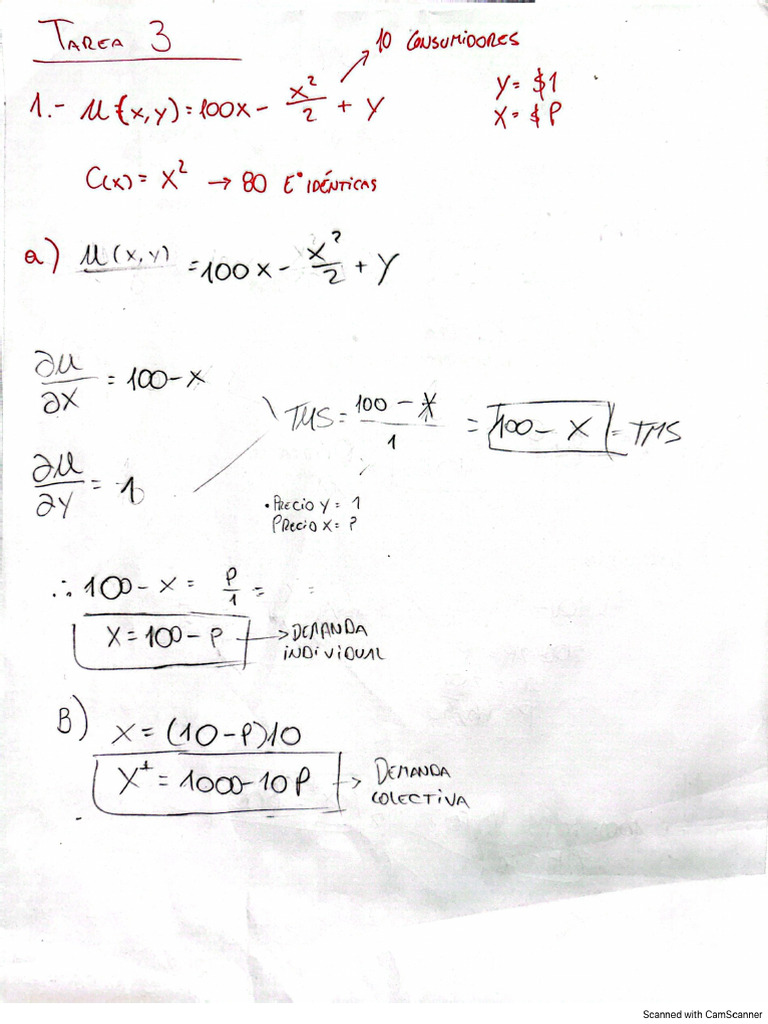 TAREA 3
10 CONSUMIDORES
1.- U(x,y) = 100x - x²/2 + y
Y = $1
X = $P
C(x) = x² → 80 E° IDÉNTICAS
a) U(x,y) = 100x - x²/2 + y
∂U/∂x = 100 - x
TMS = (100 - x)/1 = 100 - x = TMS
∂U/∂y = 1
• PRECIO Y = 1
PRECIO X = P
∴ 100 - x = P/1 = =
X = 100 - P → DEMANDA
INDIVIDUAL
B) X = (10 - P)10
X⁺ = 1000 - 10P → DEMANDA
COLECTIVA
Scanned with CamScanner